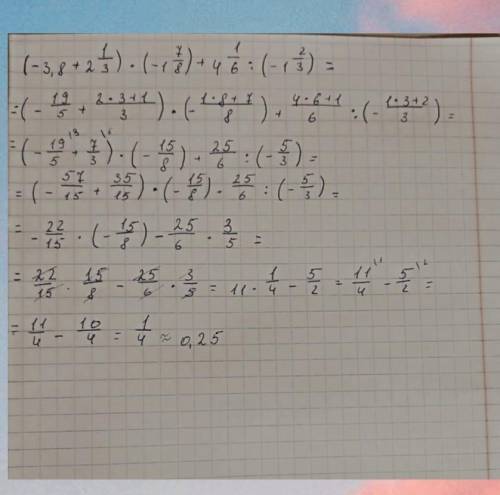 (-3,8 + 2 1/3) · (-1 7/8) + 4 1/6 : (-1 2/3) =
= (- 19/5 + 2·3+1/3) · (- 1·8+7/8) + 4·6+1/6 : (- 1·3+2/3) =
= (- 19/5 \3 + 7/3 \5) · (- 15/8) + 25/6 : (- 5/3) =
= (- 57/15 + 35/15) · (- 15/8) · 25/6 : (- 5/3) =
= - 22/15 · (- 15/8) - 25/6 · 3/5 =
= 22/15 · 15/8 - 25/6 · 3/5 = 11 · 1/4 - 5/2 = 11/4 \1 - 5/2 \2 =
= 11/4 - 10/4 = 1/4 ≈ 0,25